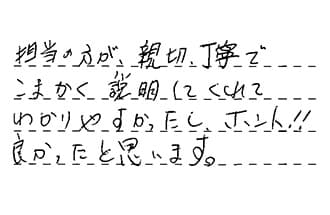 担当の方が、親切、丁寧で
こまかく説明してくれて
わかりやすかったし、ホント!!
良かったと思います。